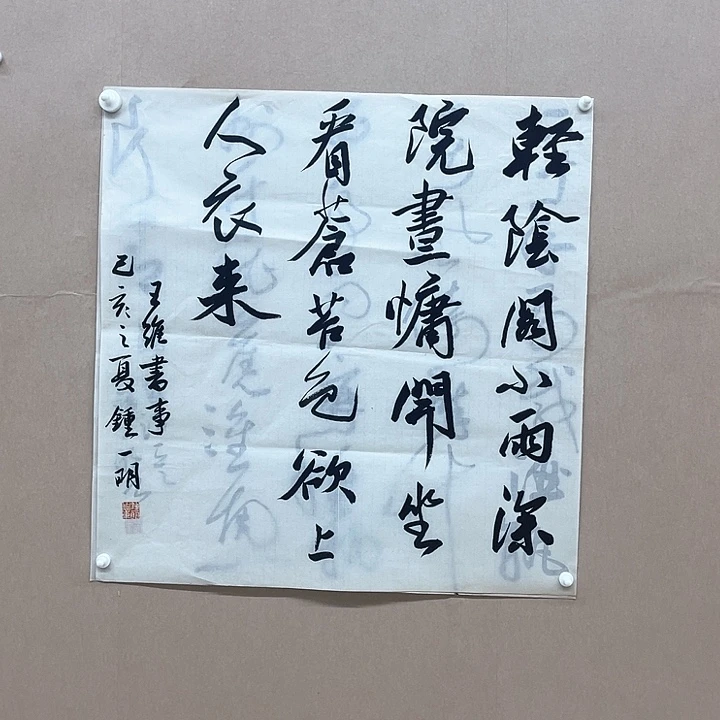 輕陰閣小雨深
院晝慵開坐
看蒼苔色欲上
人衣来
王維書事
己亥之夏鍾一明